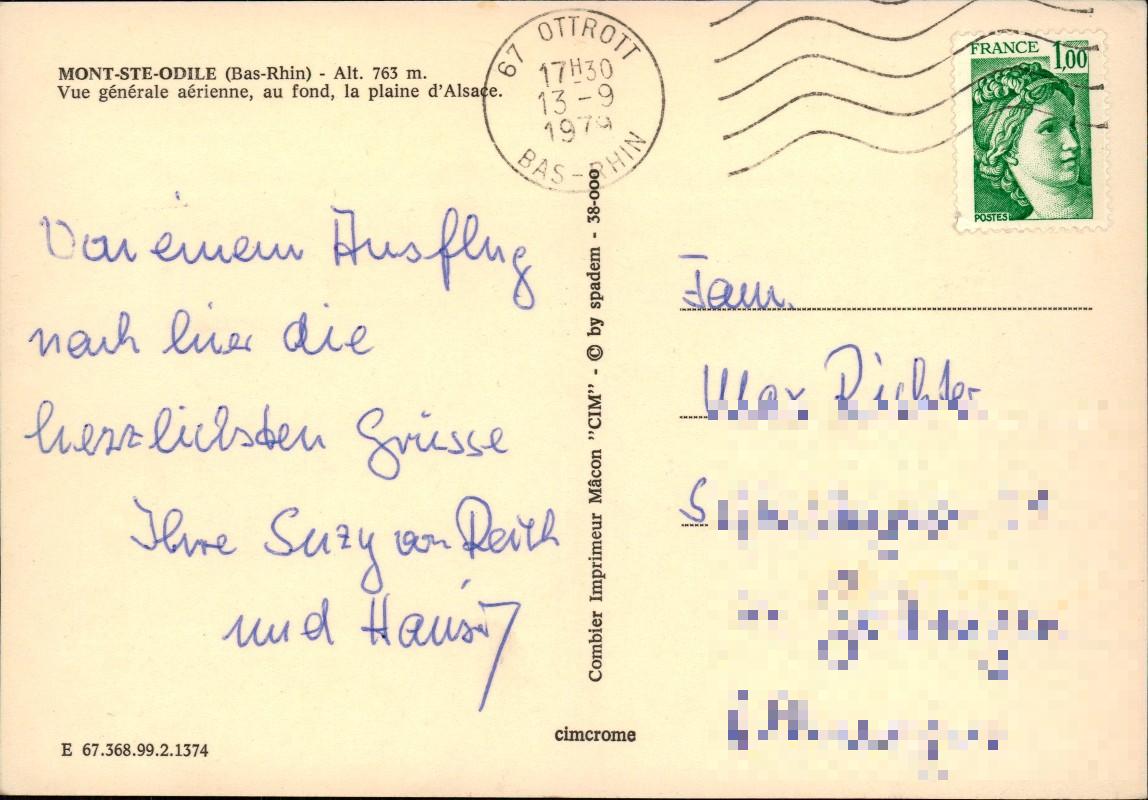 MONT-STE-ODILE (Bas-Rhin) - Alt. 763 m.
Vue générale aérienne, au fond, la plaine d'Alsace.
67 OTTROTT
17H30
13-9
1979
BAS-RHIN
FRANCE 1,00
POSTES
Von einem Ausflug
nach hier die
herzlichsten Grüsse
Ihre Suzy von Reith
und Hans
Combier Imprimeur Mâcon "CIM" - © by spadem - 38-000
Fam.
Max Richter
E 67.368.99.2.1374
cimcrome